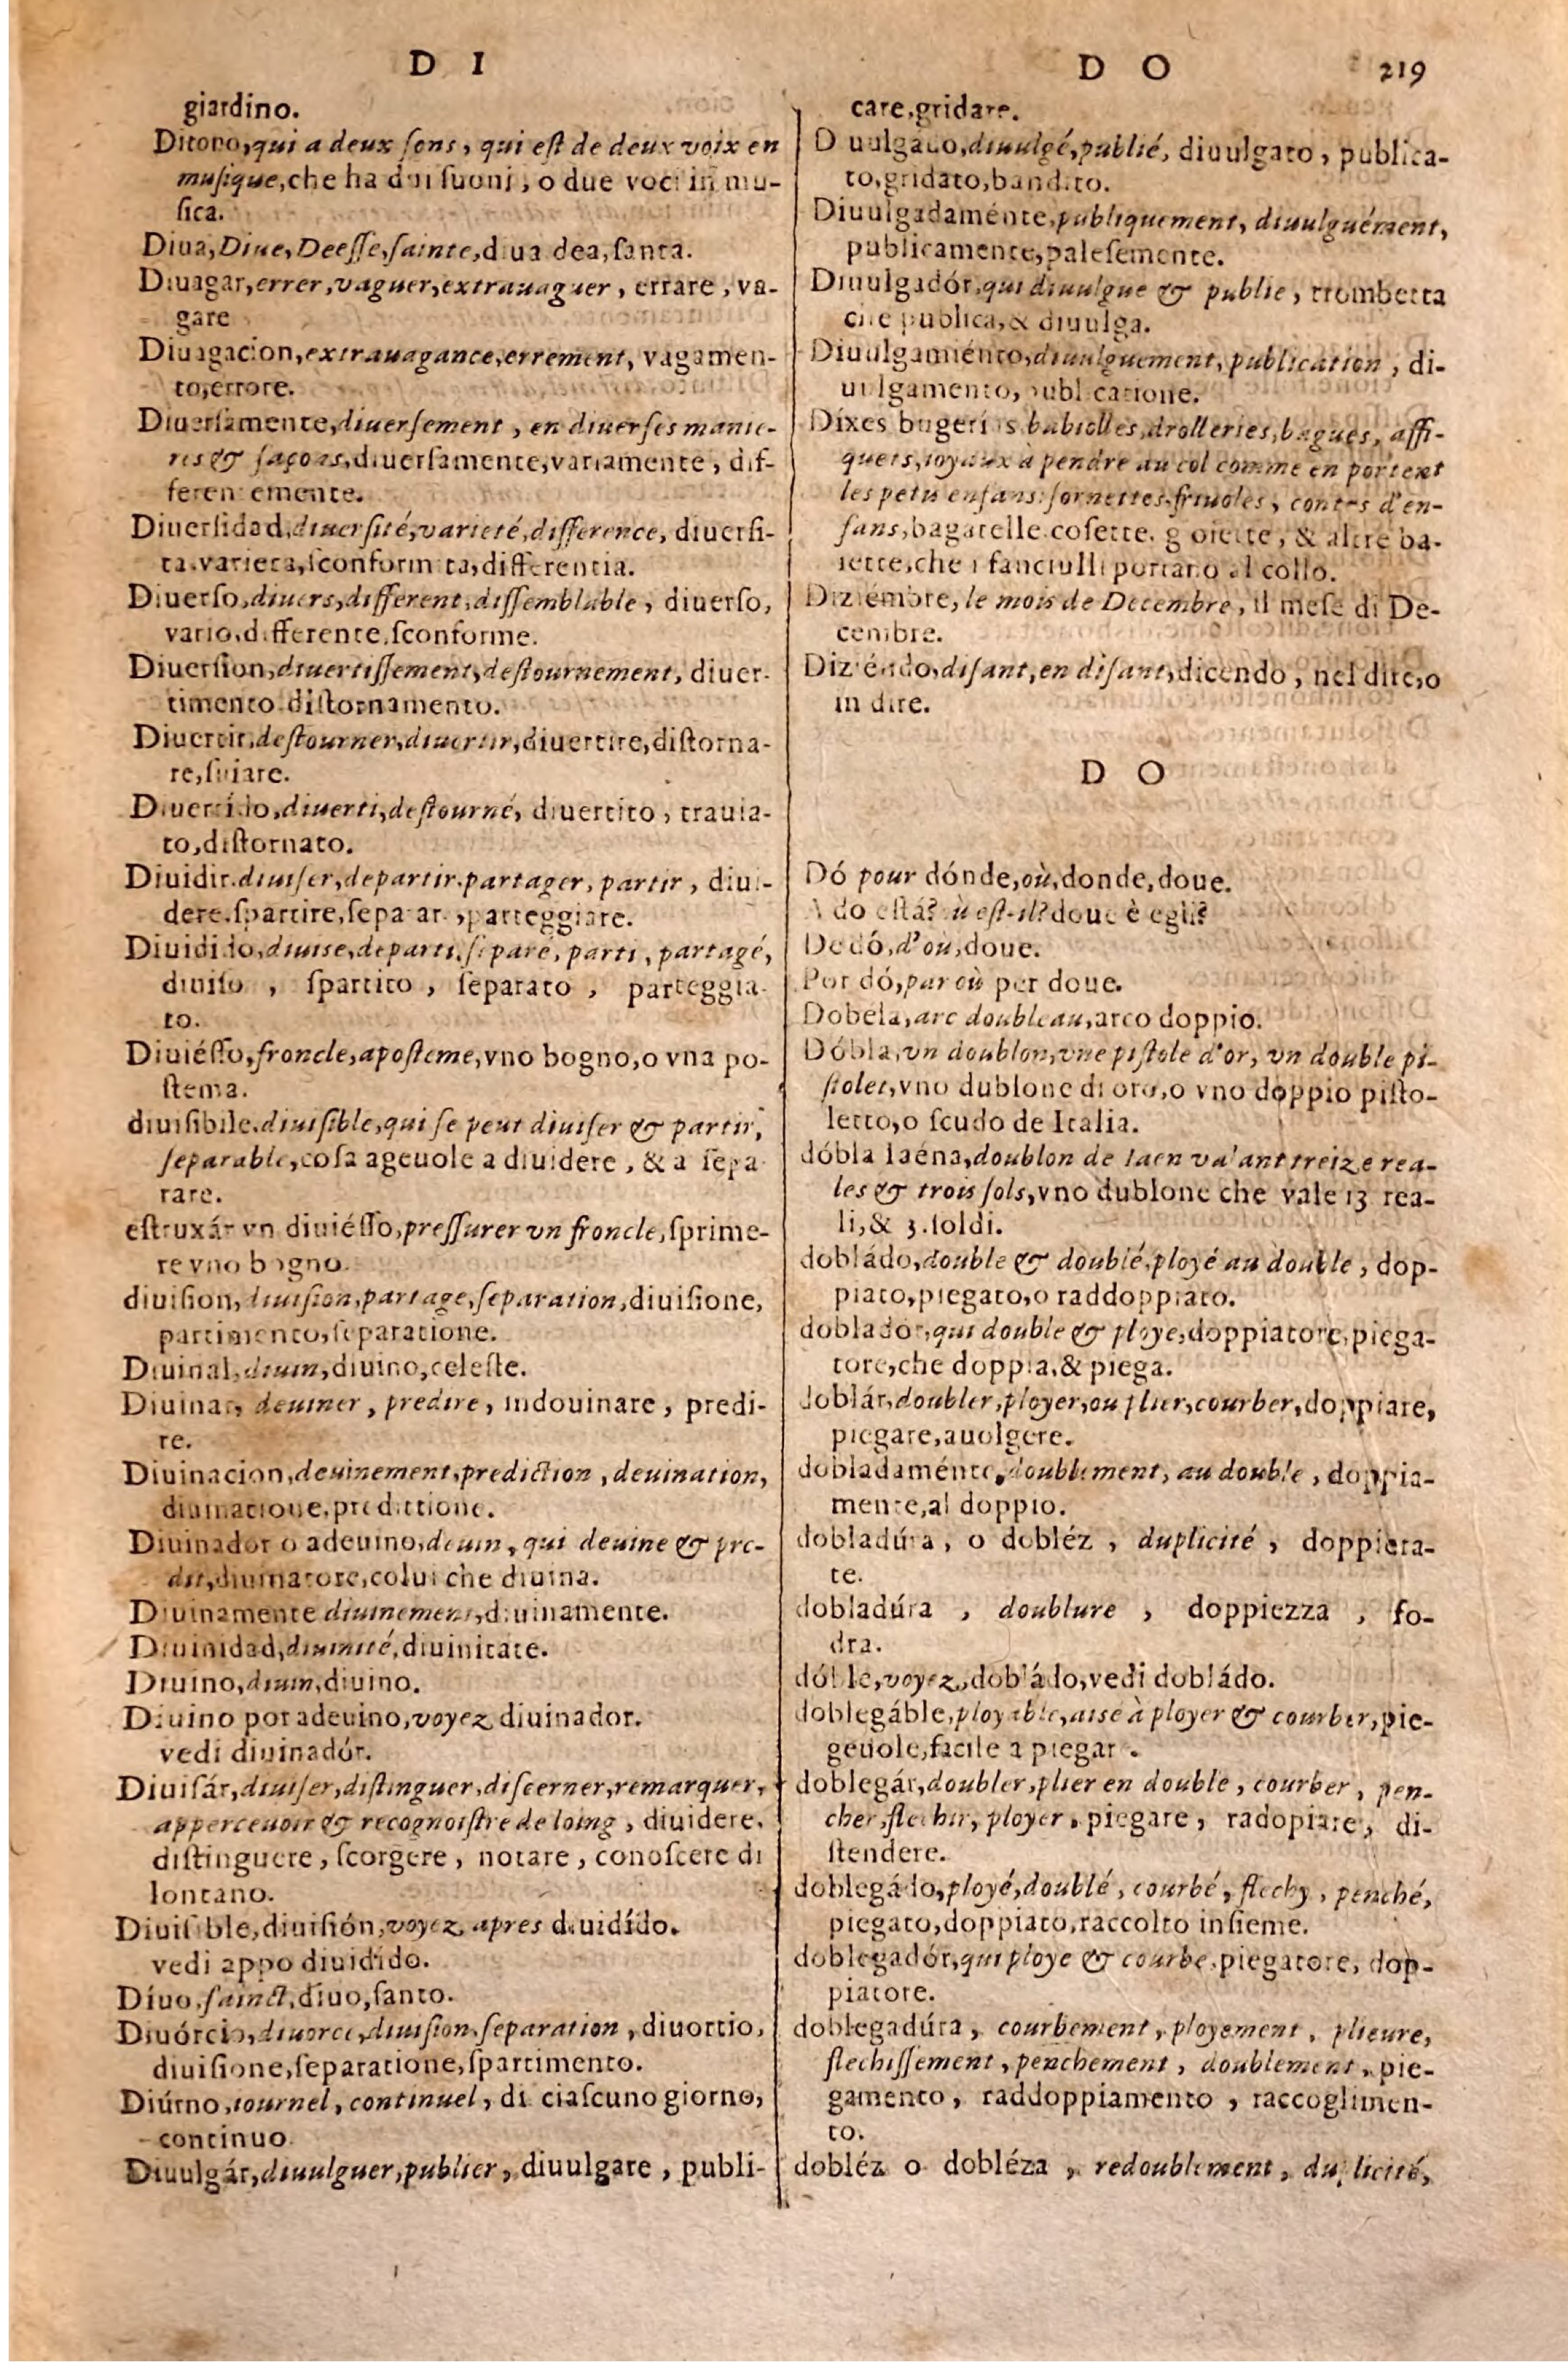 D I
giardino.
Ditono, qui a deux sons, qui est de deux voix en
musique, che ha dui suoni, o due voci in mu-
sica.
Diua, Diue, Deeſſe, ſainte, diua dea, ſanta.
Diuagar, errer, vaguer, extrauaguer, errare, va-
gare
Diuagacion, extrauagance, errement, vagamen-
to, errore.
Diuersamente, diuerſement, en diuerſes manie-
res & façons, diuerſamente, variamente, dif-
ferentemente.
Diuerſidad, diuerſité, varieté, difference, diuerſi-
ta. varieta, ſconformita, differentia.
Diuerſo, diuers, different, diſſemblable, diuerſo,
vario, differente, ſconforme.
Diuerſion, diuertiſſement, deſtournement, diuer-
timento diſtornamento.
Diuertir, deſtourner, diuertir, diuertire, diſtorna-
re, ſuiare.
Diuertido, diuerti, deſtourné, diuertito, trauia-
to, diſtornato.
Diuidir. diuiſer, departir. partager, partir, diui-
dere. ſpartire, ſeparar, parteggiare.
Diuidido, diuise, departi. ſeparé, parti, partagé,
diuiſo, ſpartito, ſeparato, parteggia-
to.
Diuiéſſo, froncle, apoſteme, vno bogno, o vna po-
ſtema.
diuiſibile. diuiſible, qui ſe peut diuiſer & partir,
ſeparable, coſa ageuole a diuidere, & a ſepa-
rare.
eſtruxár vn diuiéſſo, preſſurer vn froncle, ſprime-
re vno bogno.
diuiſion, diuiſion, partage, ſeparation, diuiſione,
partimento, ſeparatione.
Diuinal, diuin, diuino, celeſte.
Diuinar, deuiner, predire, indouinare, predi-
re.
Diuinacion, deuinement, prediction, deuination,
diuinatione. predittione.
Diuinador o adeuino, deuin, qui deuine & pre-
dit, diuinatore, colui che diuina.
Diuinamente diuinement, diuinamente.
Diuinidad, diuinité, diuinitate.
Diuino, diuin, diuino.
Diuino por adeuino, voyez diuinador.
vedi diuinadór.
Diuiſár, diuiſer, diſtinguer, diſcerner, remarquer,
apperceuoir & recognoiſtre de loing, diuidere.
diſtinguere, ſcorgere, notare, conoſcere di
lontano.
Diuiſible, diuiſión, voyez apres diuidído.
vedi appo diuidído.
Díuo. ſainct, diuo, ſanto.
Diuórcio, diuorce, diuiſion. ſeparation, diuortio,
diuiſione, ſeparatione, ſpartimento.
Diúrno, iournel, continuel, di ciaſcuno giorno,
continuo
Diuulgár, diuulguer, publier, diuulgare, publi-
D O 219
care, gridare.
Diuulgado, diuulgé, publié, diuulgato, publica-
to, gridato, bandito.
Diuulgadaménte, publiquement, diuulguément,
publicamente, paleſemente.
Diuulgadór, qui diuulgue & publie, trombetta
che publica, & diuulga.
Diuulgamiénto, diuulguement, publication, di-
uulgamento, publicatione.
Díxes bugerias babiolles, drolleries, bagues, affi-
quets, ioyaux à pendre au col comme en portent
les petis enfans: ſornettes. friuoles, contes d'en-
fans, bagatelle. coſette. gioiette, & altre ba-
iette, che i fanciulli portano al collo.
Diziémbre, le mois de Decembre, il meſe di De-
cembre.
Diziéndo, diſant, en diſant, dicendo, nel dire, o
in dire.
D O
Dó pour dónde, où, donde, doue.
A do eſtá? ù eſt-il? doue è egli?
De dó, d'où, doue.
Por dó, par où per doue.
Dobela, arc doubleau, arco doppio.
Dóbla, vn doublon, vne piſtole d'or, vn double pi-
ſtolet, vno dublone di oro, o vno doppio piſto-
letto, o ſcudo de Italia.
dóbla Iaéna, doublon de Iaen valant treize rea-
les & trois ſols, vno dublone che vale 13 rea-
li, & 3. ſoldi.
dobládo, double & doublé, ployé au double, dop-
piato, piegato, o raddoppiato.
doblador, qui double & ploye, doppiatore, piega-
tore, che doppia, & piega.
doblár, doubler, ployer, ou plier, courber, doppiare,
piegare, auolgere.
dobladaménte, doublement, au double, doppia-
mente, al doppio.
dobladúra, o dobléz, duplicité, doppieta-
te.
dobladúra, doublure, doppiezza, fo-
dra.
dóble, voyez, dobládo, vedi dobládo.
doblegáble, ployable, aisé à ployer & courber, pie-
geuole, facile a piegar.
doblegár, doubler, plier en double, courber, pen-
cher, flechir, ployer, piegare, radopiare, di-
ſtendere.
doblegádo, ployé, doublé, courbé, flechy, penché,
piegato, doppiato, raccolto inſieme.
doblegadór, qui ploye & courbe. piegatore, dop-
piatore.
doblegadúra, courbement, ployement, plieure,
flechiſſement, penchement, doublement, pie-
gamento, raddoppiamento, raccoglimen-
to.
dobléz o dobléza, redoublement, duplicité,